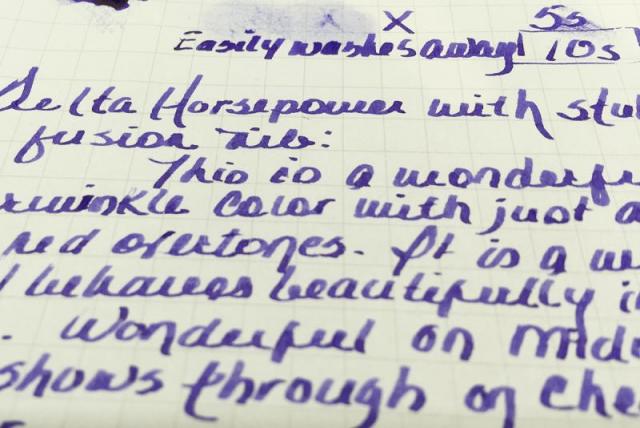 X 5s
Easily washes away! 10s
Delta Horsepower with stu
fusion nib:
This is a wonderfu
rwinkle color with just a
red overtones. It is a w
behaves beautifully i
. Wonderful on mid
shows through on che